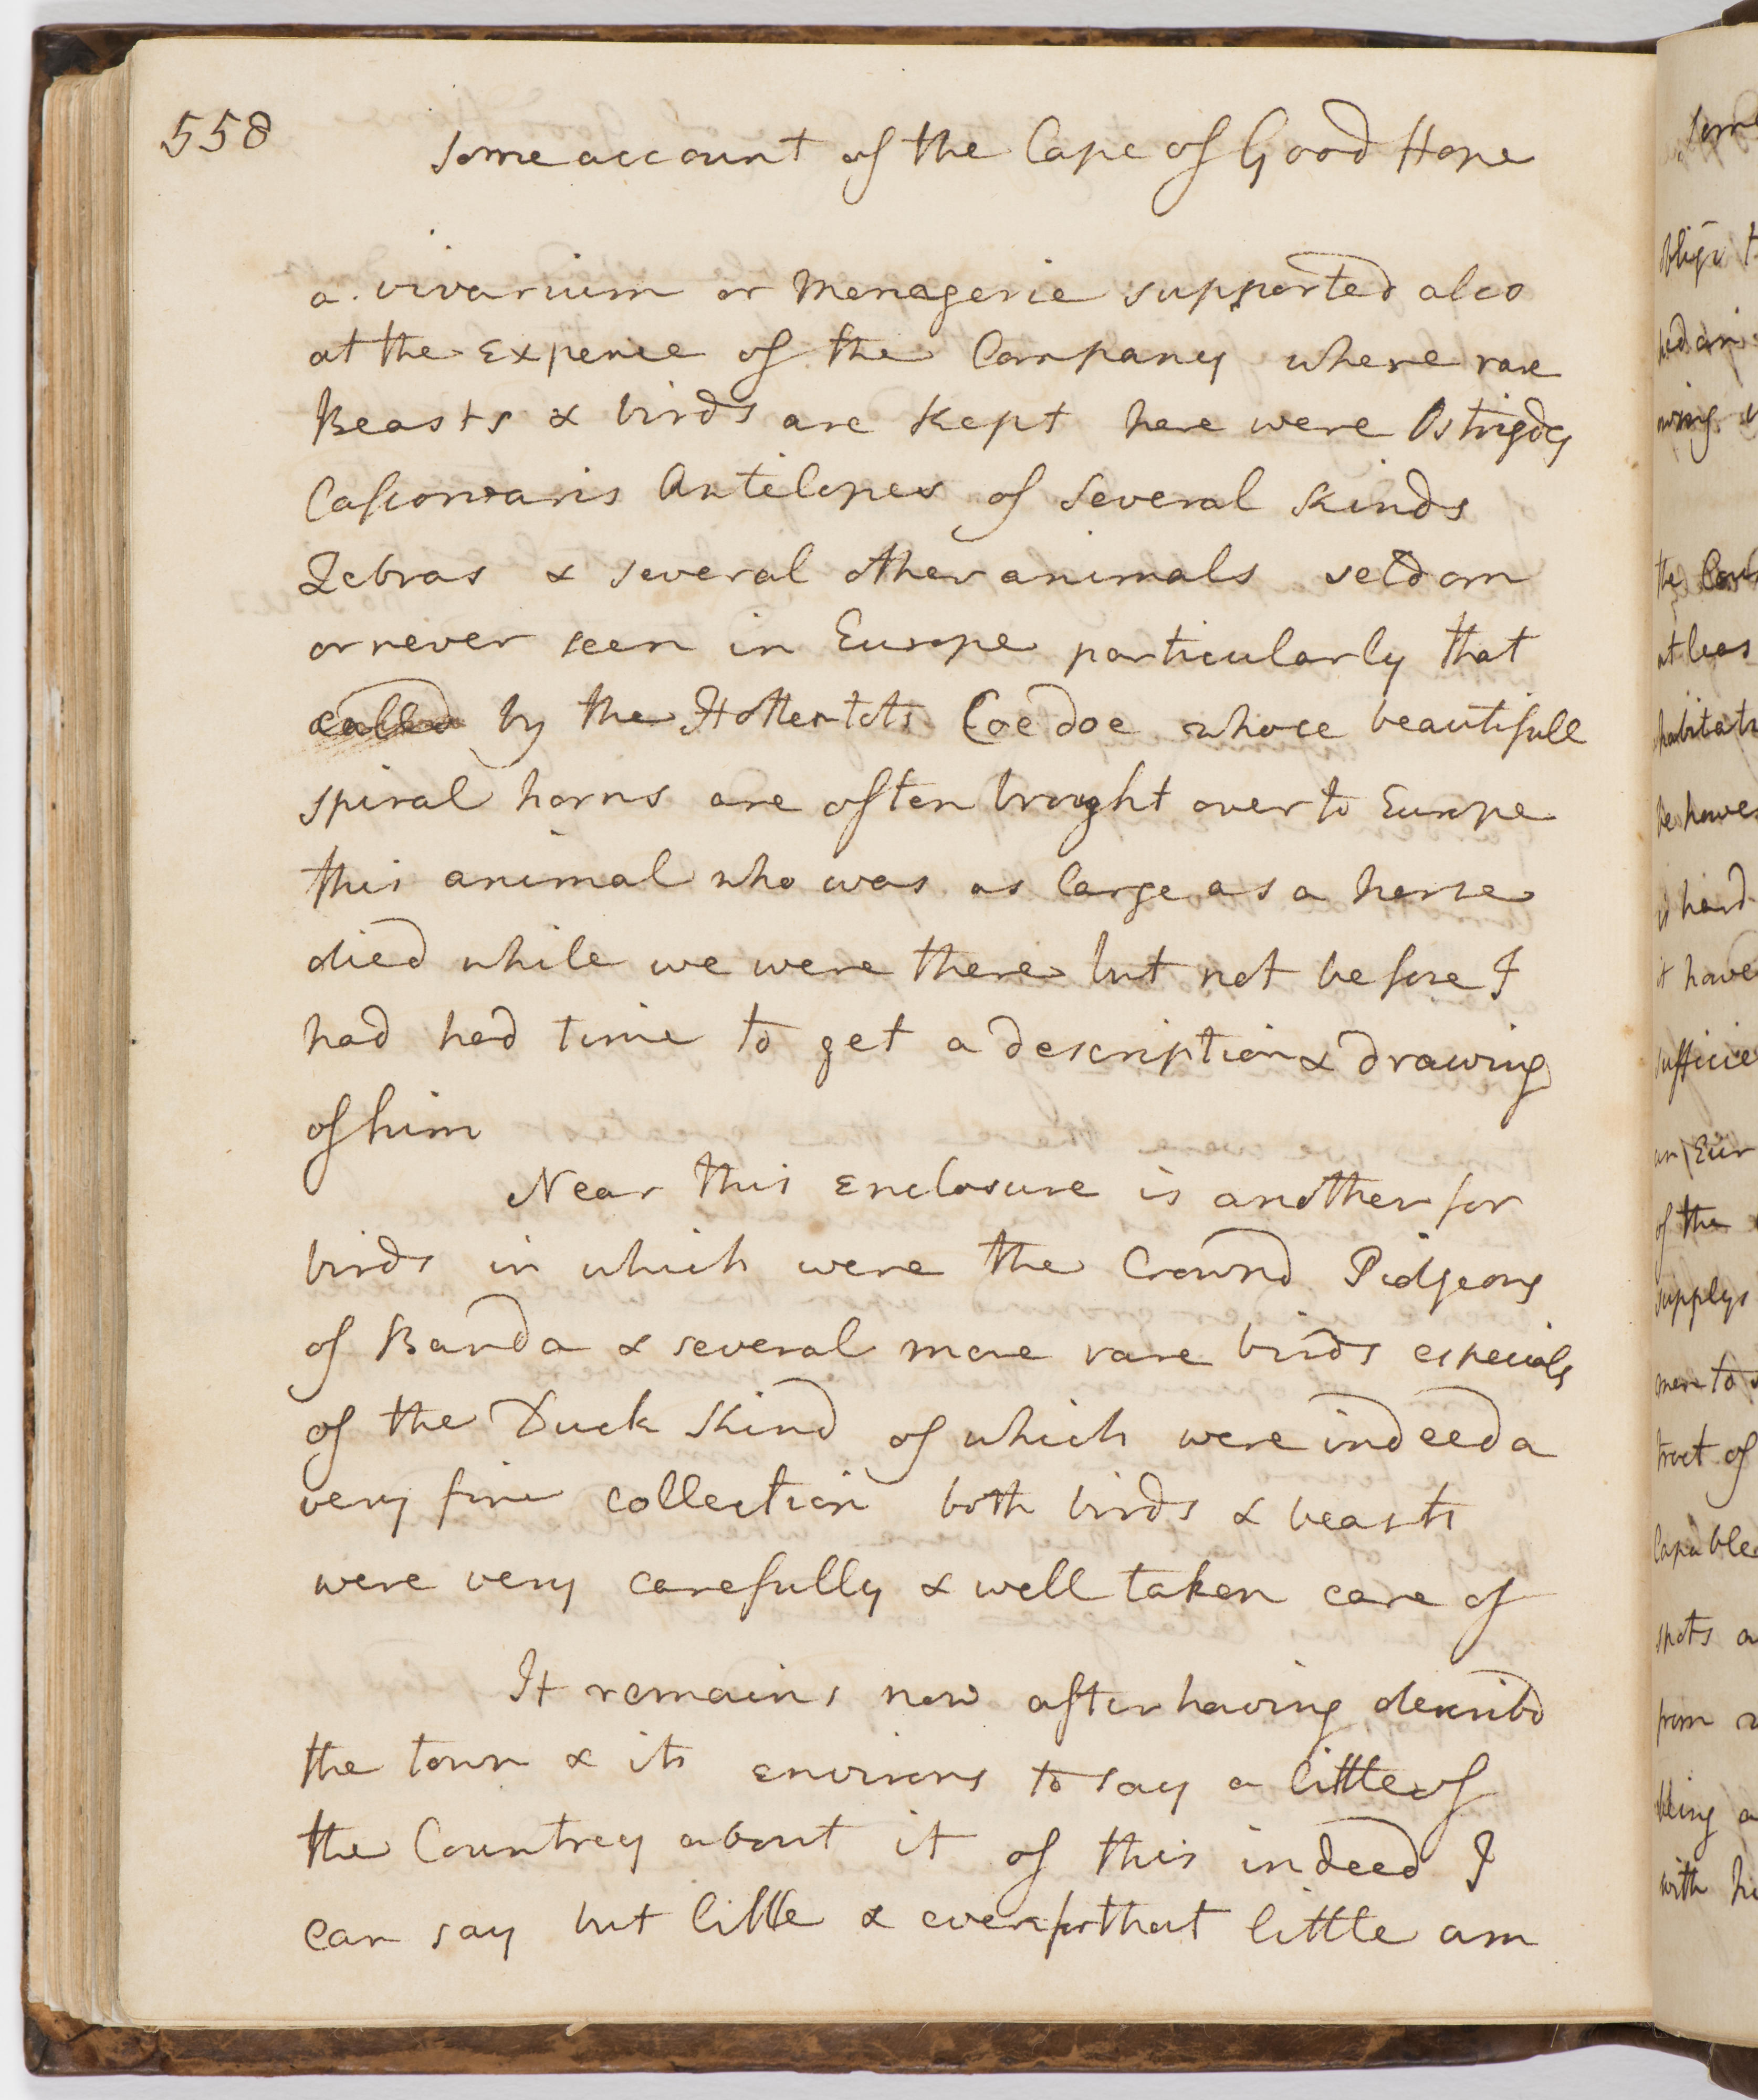 558
Some account of the Cape of Good Hope
a vivarium or Menagerie supported also
at the Expence of the Company where rare
Beasts & birds are kept here were Ostrigdes
Cassowaris Antilopes of several kinds
Zebras & several other animals seldom
or never seen in Europe particularly that
called by the Hottentots Coe doe whose beautifull
spiral horns are often brought over to Europe
this animal who was as large as a horse
died while we were there but not before I
had had time to get a description & drawing
of him
Near this Enclosure is another for
birds in which were the Crownd Pidgeons
of Banda & several more rare birds especialy
of the Duck kind of which were indeed a
very fine collection both birds & beasts
were very carefully & well taken care of
It remains now after having describd
the town & its environs to say a little of
the Countrey about it of this indeed I
can say but little & even for that little am
Some
oblig'd
at leas
habitati
be howe
is hard
it have
sufficie
an Eur
of the
supplys
men to
tract of
Capable
spots a
from
being a
with hi